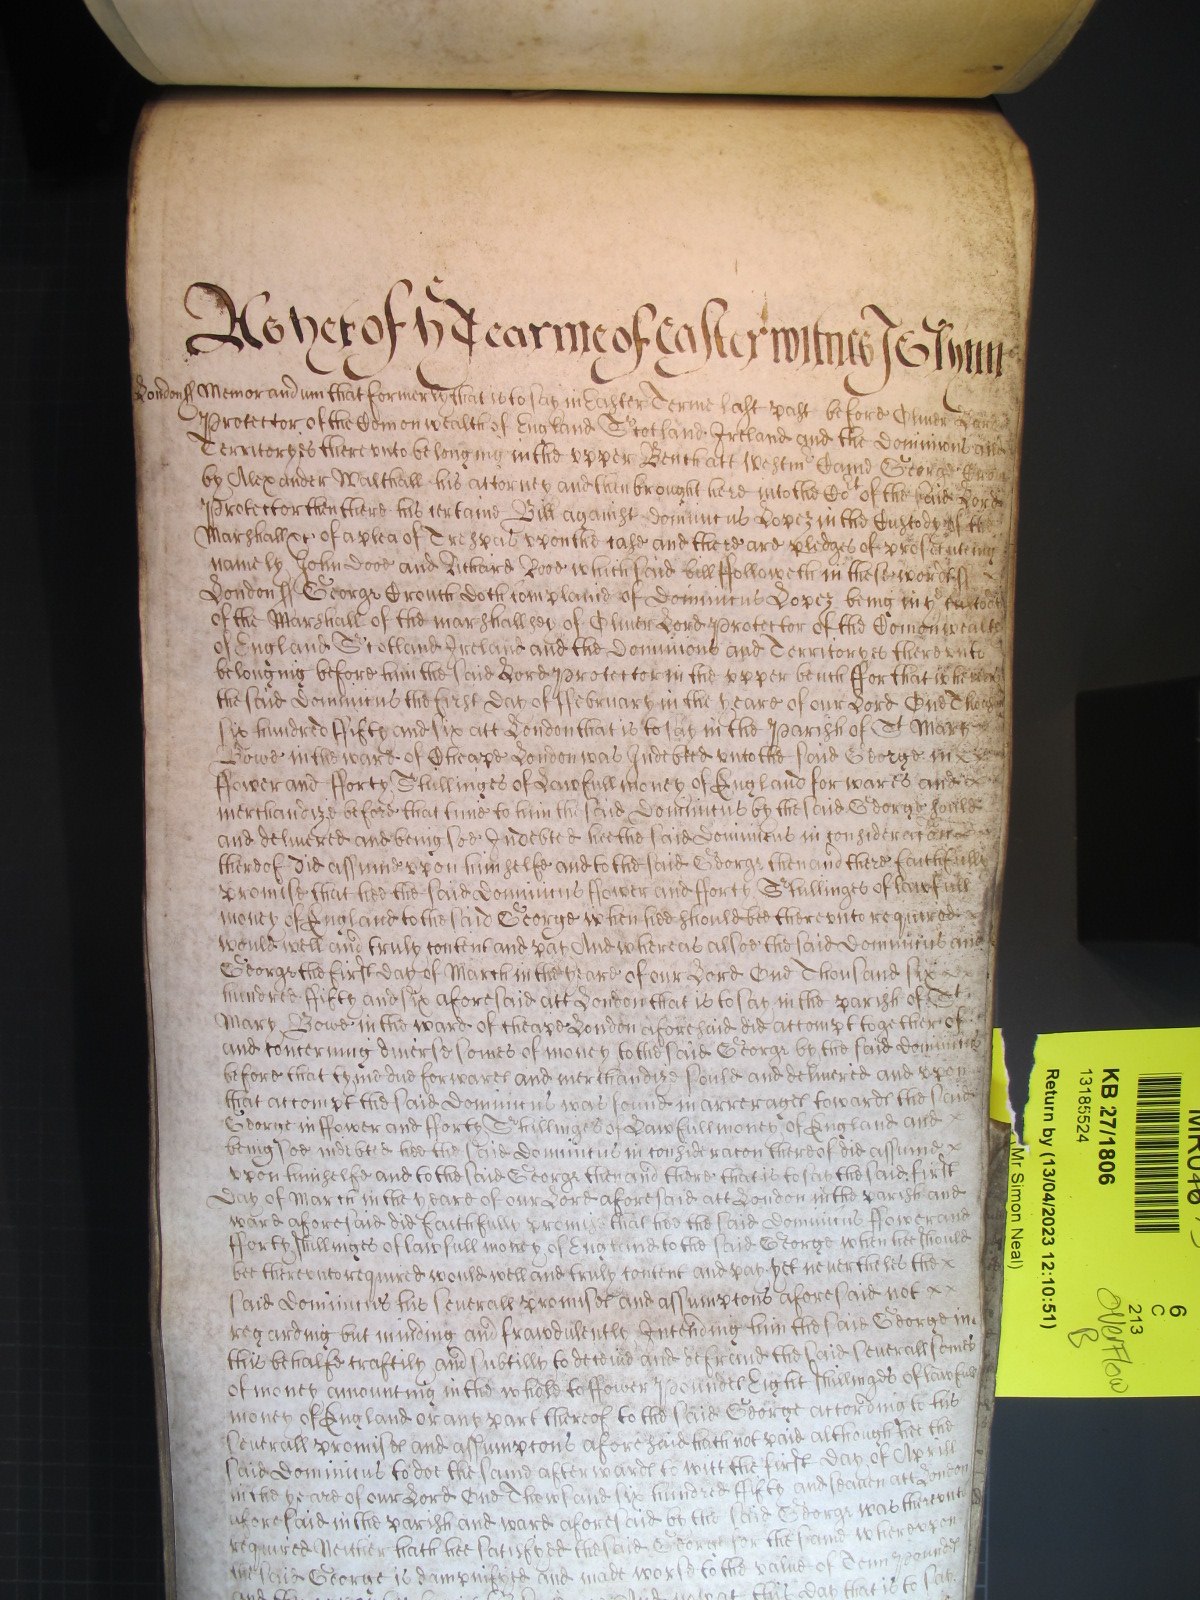 As yet of ye Tearme of Easter witnes J Glynn
London ss Memorandum that formerly that is to say in Easter Terme last past before Oliver Lord
Protector of the Comonwealth of England Scotland Ireland and the Dominions and
Territoryes thereunto belonging in the upper Bench att Westmr Came George
by Alexander Walthall his attorney and then brought here into the Cot of the said Lord
Protector then there his certaine Bill against Dominicus Lopez in the Custody of the
Marshall &c of a plea of Trespas upon the case and there are pledges of prosecuteing
namely John Dooe and Richard Rooe which said bill ffolloweth in these wordes ss
London ss George Crouch doth complaine of Dominicus Lopez being in ye custody
of the Marshall of the marshallsey of Oliver Lord Protector of the Comonwealth
of England Scotland Ireland and the Dominions and Territoryes thereunto
belonging before him the said Lord Protector in the upper bench ffor that whereas
the said Dominicus the first day of ffebruary in the yeare of our Lord One Thousand
six hundred ffifty and six att London that is to say in the Parish of St Mary
Bowe in the ward of Cheape London was Indebted unto the said George in
ffower and fforty Shillinges of Lawfull money of England for wares and
merchandize before that time to him the said Dominicus by the said George sould
and delivered and being soe Indebted hee the said Dominicus in consideracon
thereof did assume upon himselfe and to the said George then and there faithfully
promise that hee the said Dominicus ffower and fforty Shillinges of lawfull
money of England to the said George when hee should bee thereunto required
would well and truly content and pay And whereas alsoe the said Dominicus and
George the first day of March in the yeare of our Lord One Thousand six
hundred ffifty and six aforesaid att London that is to say in the parish of St
Mary Bowe in the ward of Cheape London aforesaid did accompt together of
and concerning diverse somes of money to the said George by the said Dominicus
before that tyme due for wares and merchandize sould and delivered and upon
that accompt the said Dominicus was found in arrerages towards the said
George in ffower and fforty Shillinges of Lawfull money of England and
being soe indebted hee the said Dominicus in consideracon thereof did assume
upon himselfe and to the said George then and there that is to say the said first
day of March in the yeare of our Lord aforesaid att London in the parish and
ward aforesaid did faithfully promise that hee the said Dominicus ffower and
fforty shillinges of lawfull money of England to the said George when hee should
bee thereunto required would well and truly content and pay yet neverthelesse the
said Dominicus his severall promises and assumptons aforesaid not
regarding but minding and fraudulently Intending him the said George in
this behalfe craftily and subtilly to deceive and defraud the said severall somes
of money amounting in the whole to ffower Poundes Eight shillinges of lawfull
money of England or any part thereof to the said George according to his
severall promises and assumptons aforesaid hath not paid although hee the
said Dominicus to doe the same afterwards to witt the first day of Aprill
in the yeare of our Lord One Thowsand six hundred ffifty and seaven att London
aforesaid in the parish and ward aforesaid by the said George was thereunto
required Neither hath hee satisfyed the said George for the same whereupon
the said George is dampnifyed and made worse to the value of Tenn Poundes
this day that is to say
KB 27/1806
13185524
Return by (13/04/2023 12:10:51)
Mr Simon Neal)
6
C
213
overflow
B